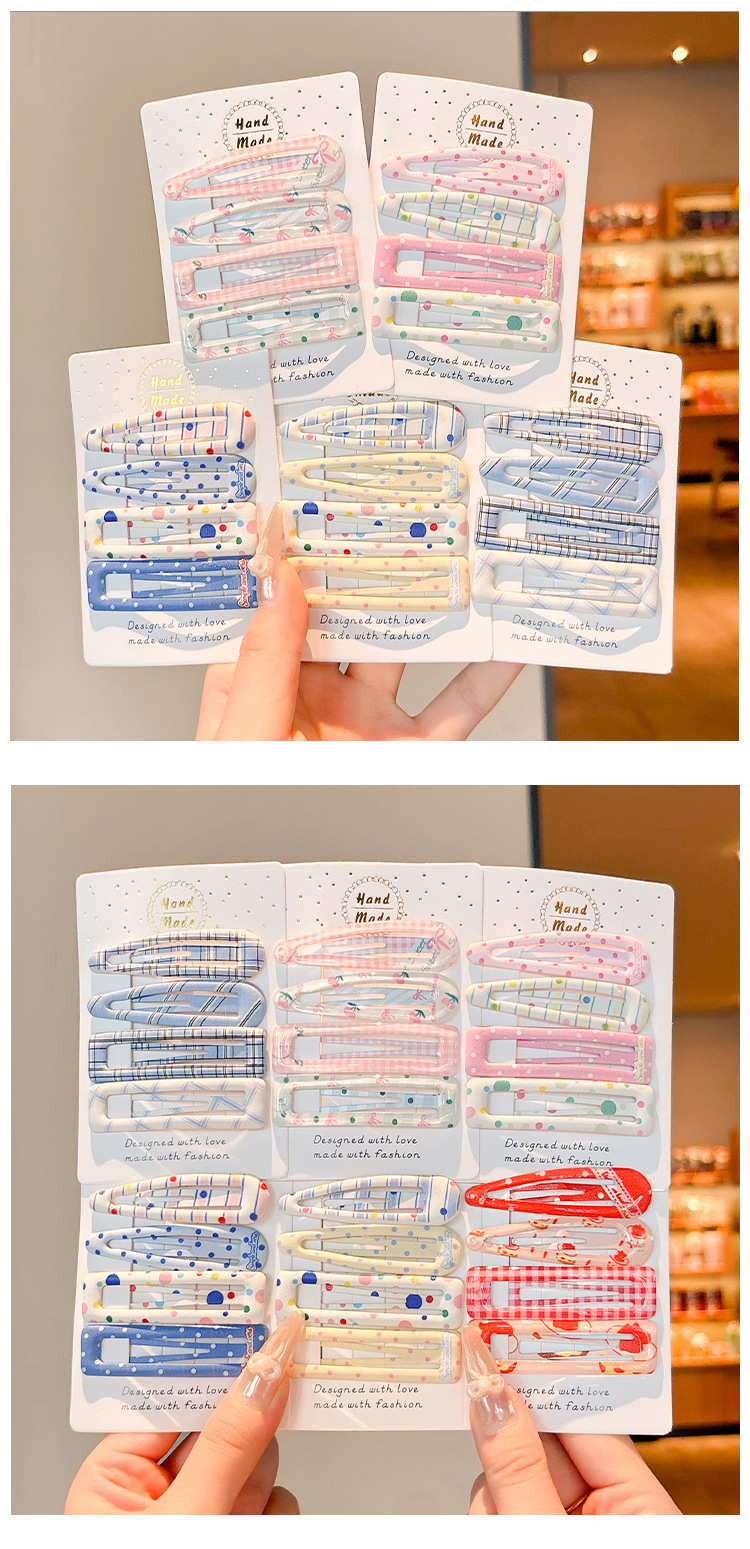 Hand
Made
Hand
Made
Designed with love
made with fashion
d with love
th fashion
Hand
Made
Hand
Made
Designed with love
made with fashion
Designed with love
made with fashion
Designed with love
made with fashion
Hand
Made
Hand
Made
Hand
Made
Designed with love
made with fashion
Designed with love
made with fashion
Designed with love
made with fashion
Designed with love
made with fashion
Designed with love
made with fashion
esigned with love
de with fashion